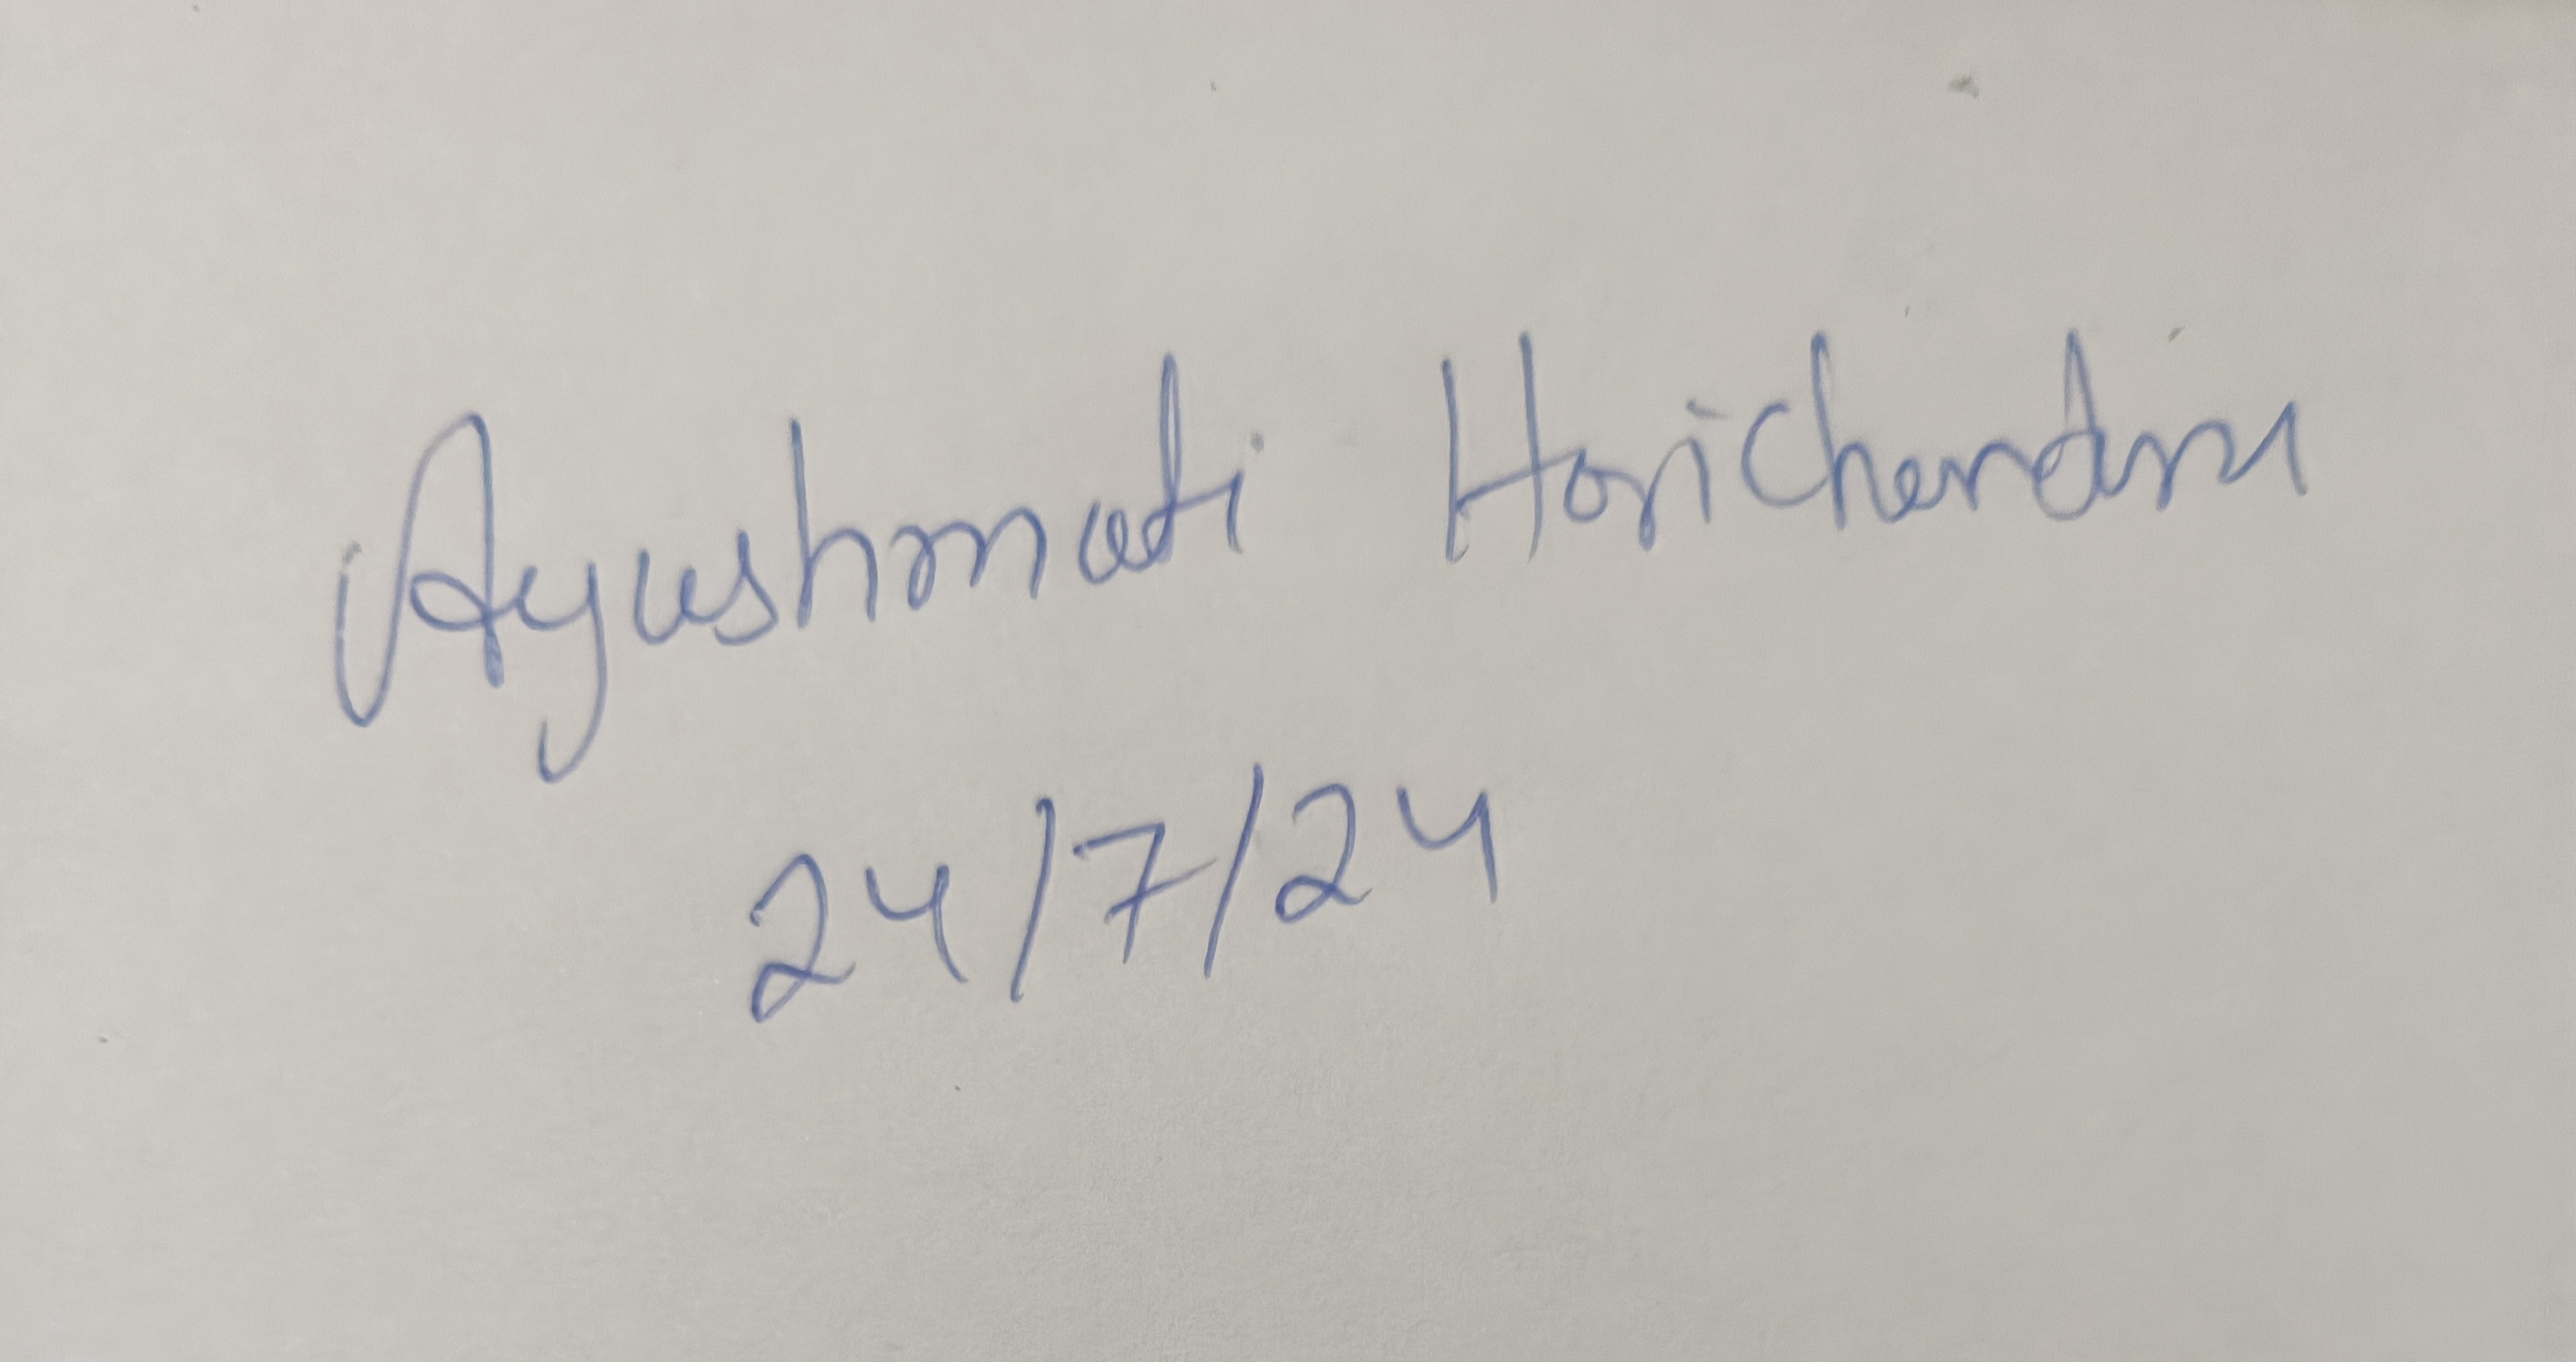 Ayushmati Harichandra
24/7/24